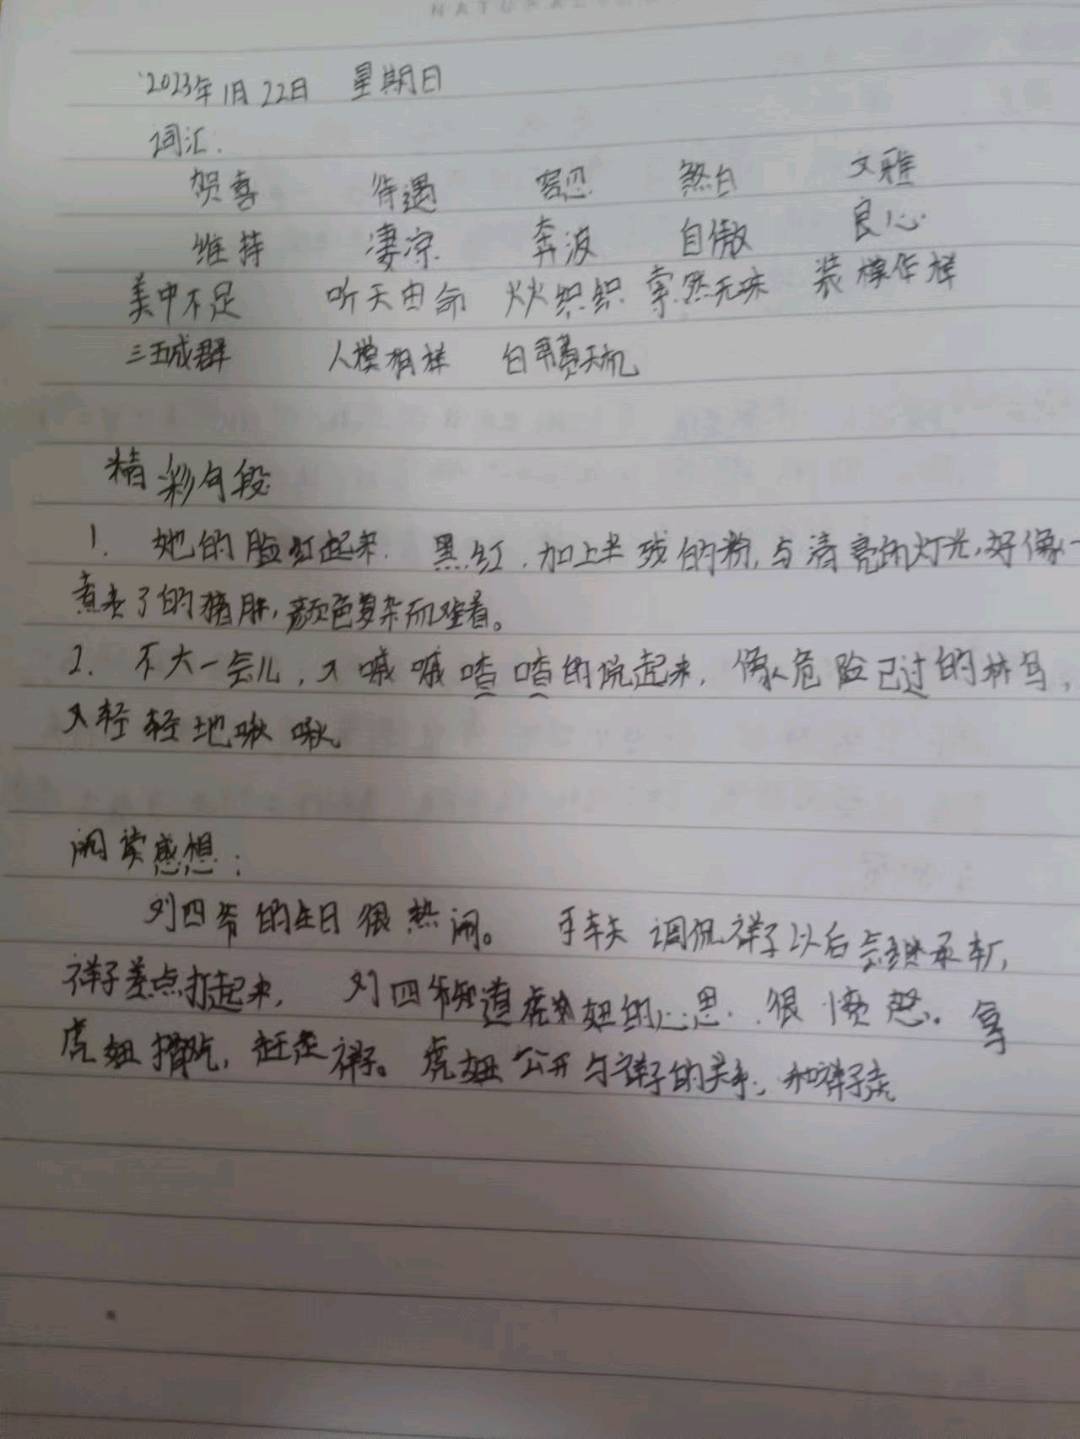 NATURAL
2023年1月22日 星期日
词汇:
贺喜 待遇 容忍 煞白 文雅
维持 凄凉 奔波 自傲 良心
美中不足 听天由命 炊炽炽 索然无味 装模作样
三五成群 人模有样 白费天机
精彩句段
1. 她的脸红起来. 黑红,加上半残的粉,与清亮的灯光,好像一
煮老了的猪肝,颜色复杂而难看。
2. 不大一会儿,又嘁嘁喳喳的说起来,像危险已过的林鸟,
又轻轻地啾啾
阅读感想:
刘四爷的生日很热闹。 车夫调侃祥子以后会继承车厂,
祥子差点打起来, 刘四爷知道虎妞的心思.很愤怒。拿
虎妞撒气,赶走祥子。虎妞公开与祥子的关系,和祥子走